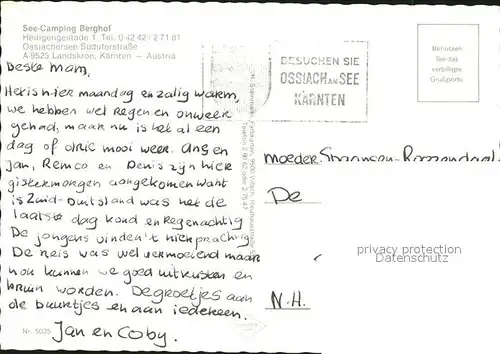 See-Camping Berghof
Heiligengestade 1 Tel. 0 42 42 / 2 71 81
Ossiachersee Süduferstraße
A-9523 Landskron, Kärnten — Austria
BESUCHEN SIE
OSSIACH AM SEE
KÄRNTEN
Benutzen
Sie das
verbilligte
Grußporto
Beste Mam,
Het is hier maandag en zalig warm,
we hebben wel regen en onweer
gehad, maar nu is het al een
dag of drie mooi weer. Ans en
Jan, Remco en Denis zijn hier
gistermorgen aangekomen want
is Zuid-Duitsland was het de
laatste dag koud en regenachtig
De jongens vinden't hier prachtig.
De reis was wel vermoeiend maar
nou kunnen we goed uitrusten en
bruin worden. De groetjes aan
de buurtjes en aan iedereen.
Jan en Coby.
Moeder
De
N.H.
privacy protection
Datenschutz
Nr. 5035